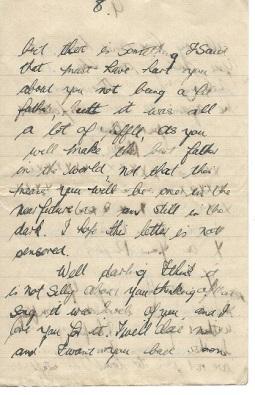 8.
but there is something I said
that must have hurt you
about you not being a fit
father, but it was all
a lot of piffle, as you
will make the best father
in the world, not that this
means you will be one in the
near future as I am still in the
dark. I hope this letter is not
censored.
Well darling I think it
is not silly about you thinking of
song it was lovely of you and I
love you for it. Well dear
and I want you back soon